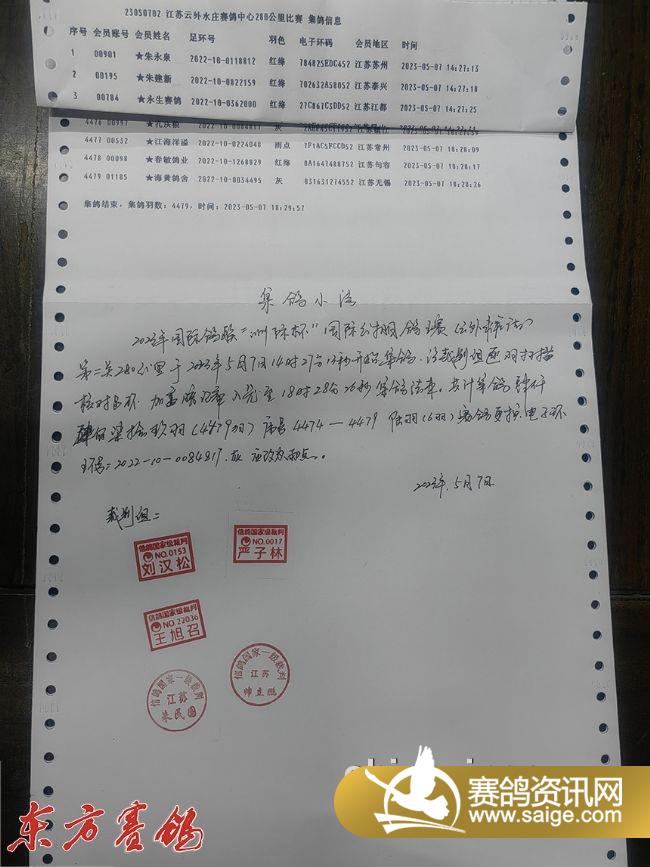 230S0702 江苏云外水庄赛鸽中心280公里比赛 集鸽信息
序号 会员账号 会员姓名 足环号 羽色 电子环码 会员地区 时间
1 00901 ★朱永泉 2022-10-0118812 红绛 784825EDC452 江苏苏州 2023-05-07 14:27:13
2 00195 ★朱建新 2022-10-0822159 红绛 702632A58052 江苏泰兴 2023-05-07 14:27:18
3 00784 ★永生赛鸽 2022-10-0362000 红绛 27C867C5DD52 江苏江都 2023-05-07 14:27:25
4477 00532 ★江海洋溢 2022-10-0224048 雨点 7P1AC5FCCD52 江苏常州 2023-05-07 18:28:09
4478 00098 ★春敏鸽业 2022-10-1268829 红绛 8A1647488752 江苏句容 2023-05-07 18:28:17
4479 01185 ★海黄鸽舍 2022-10-0034495 灰 831631274552 江苏无锡 2023-05-07 18:28:26
集鸽结束，集鸽羽数：4479，时间：2023-05-07 18:29:57
集鸽小结
2023年国际鸽联“洲际杯”国际公棚鸽王赛
第二关280公里于2023年5月7日14时27分13秒开始集鸽，经裁判组逐羽扫描
核对鸽环，加盖 至18时28分26秒集鸽结束。共计集鸽肆仟
肆佰柒拾玖羽（4479羽）序号4474—4479 陆羽（6羽）赛鸽更换电子环
2022-10-0084817，灰 应改为雨点。
2023年5月7日
裁判组：
信鸽国家级裁判
NO.0153
刘汉松
信鸽国家级裁判
NO.0017
严子林
信鸽国家级裁判
NO.22036
王旭召
信鸽国家一级裁判
江苏
朱民国
信鸽国家一级裁判
江苏
帅立洲
东方赛鸽
赛鸽资讯网
www.saige.com